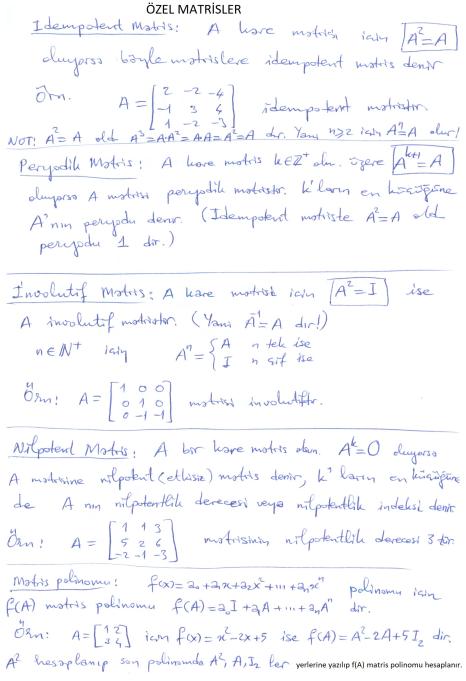 ÖZEL MATRİSLER
İdempotent Matris: A kare matrisi için A²=A
oluyorsa böyle matrislere idempotent matris denir
Örn. A = [2 -2 -4; -1 3 4; 1 -2 -3] idempotent matristir.
NOT: A²=A old A³=A·A²=A·A=A²=A dır. Yani n≥2 için Aⁿ=A olur!
Peryodik Matris: A kare matris k∈Z⁺ olm. üzere Aᵏ⁺¹=A
oluyorsa A matrisi peryodik matristir. k'ların en küçüğüne
A'nın peryodu denir. (İdempotent matriste A²=A old
peryodu 1 dir.)
İnvolutif Matris: A kare matrisi için A²=I ise
A involutif matristir. (Yani A⁻¹=A dır!)
n∈ℕ⁺ için Aⁿ = { A n tek ise
I n çift ise
Örn: A = [1 0 0; 0 1 0; 0 -1 -1] matrisi involutiftir.
Nilpotent Matris: A bir kare matris olsun. Aᵏ=0 oluyorsa
A matrisine nilpotent (etkisiz) matris denir, k'ların en küçüğüne
de A nın nilpotentlik derecesi veya nilpotentlik indeksi denir
Örn: A = [1 1 3; 5 2 6; -2 -1 -3] matrisinin nilpotentlik derecesi 3 tür.
Matris polinomu: f(x)=a₀+a₁x+a₂x²+...+aₙxⁿ polinomu için
f(A) matris polinomu f(A)=a₀I+a₁A+...+aₙAⁿ dir.
Örn: A=[1 2; 3 4] için f(x)=x²-2x+5 ise f(A)=A²-2A+5I₂ dir.
A² hesaplanıp son polinomda A², A, I₂ ler yerlerine yazılıp f(A) matris polinomu hesaplanır.